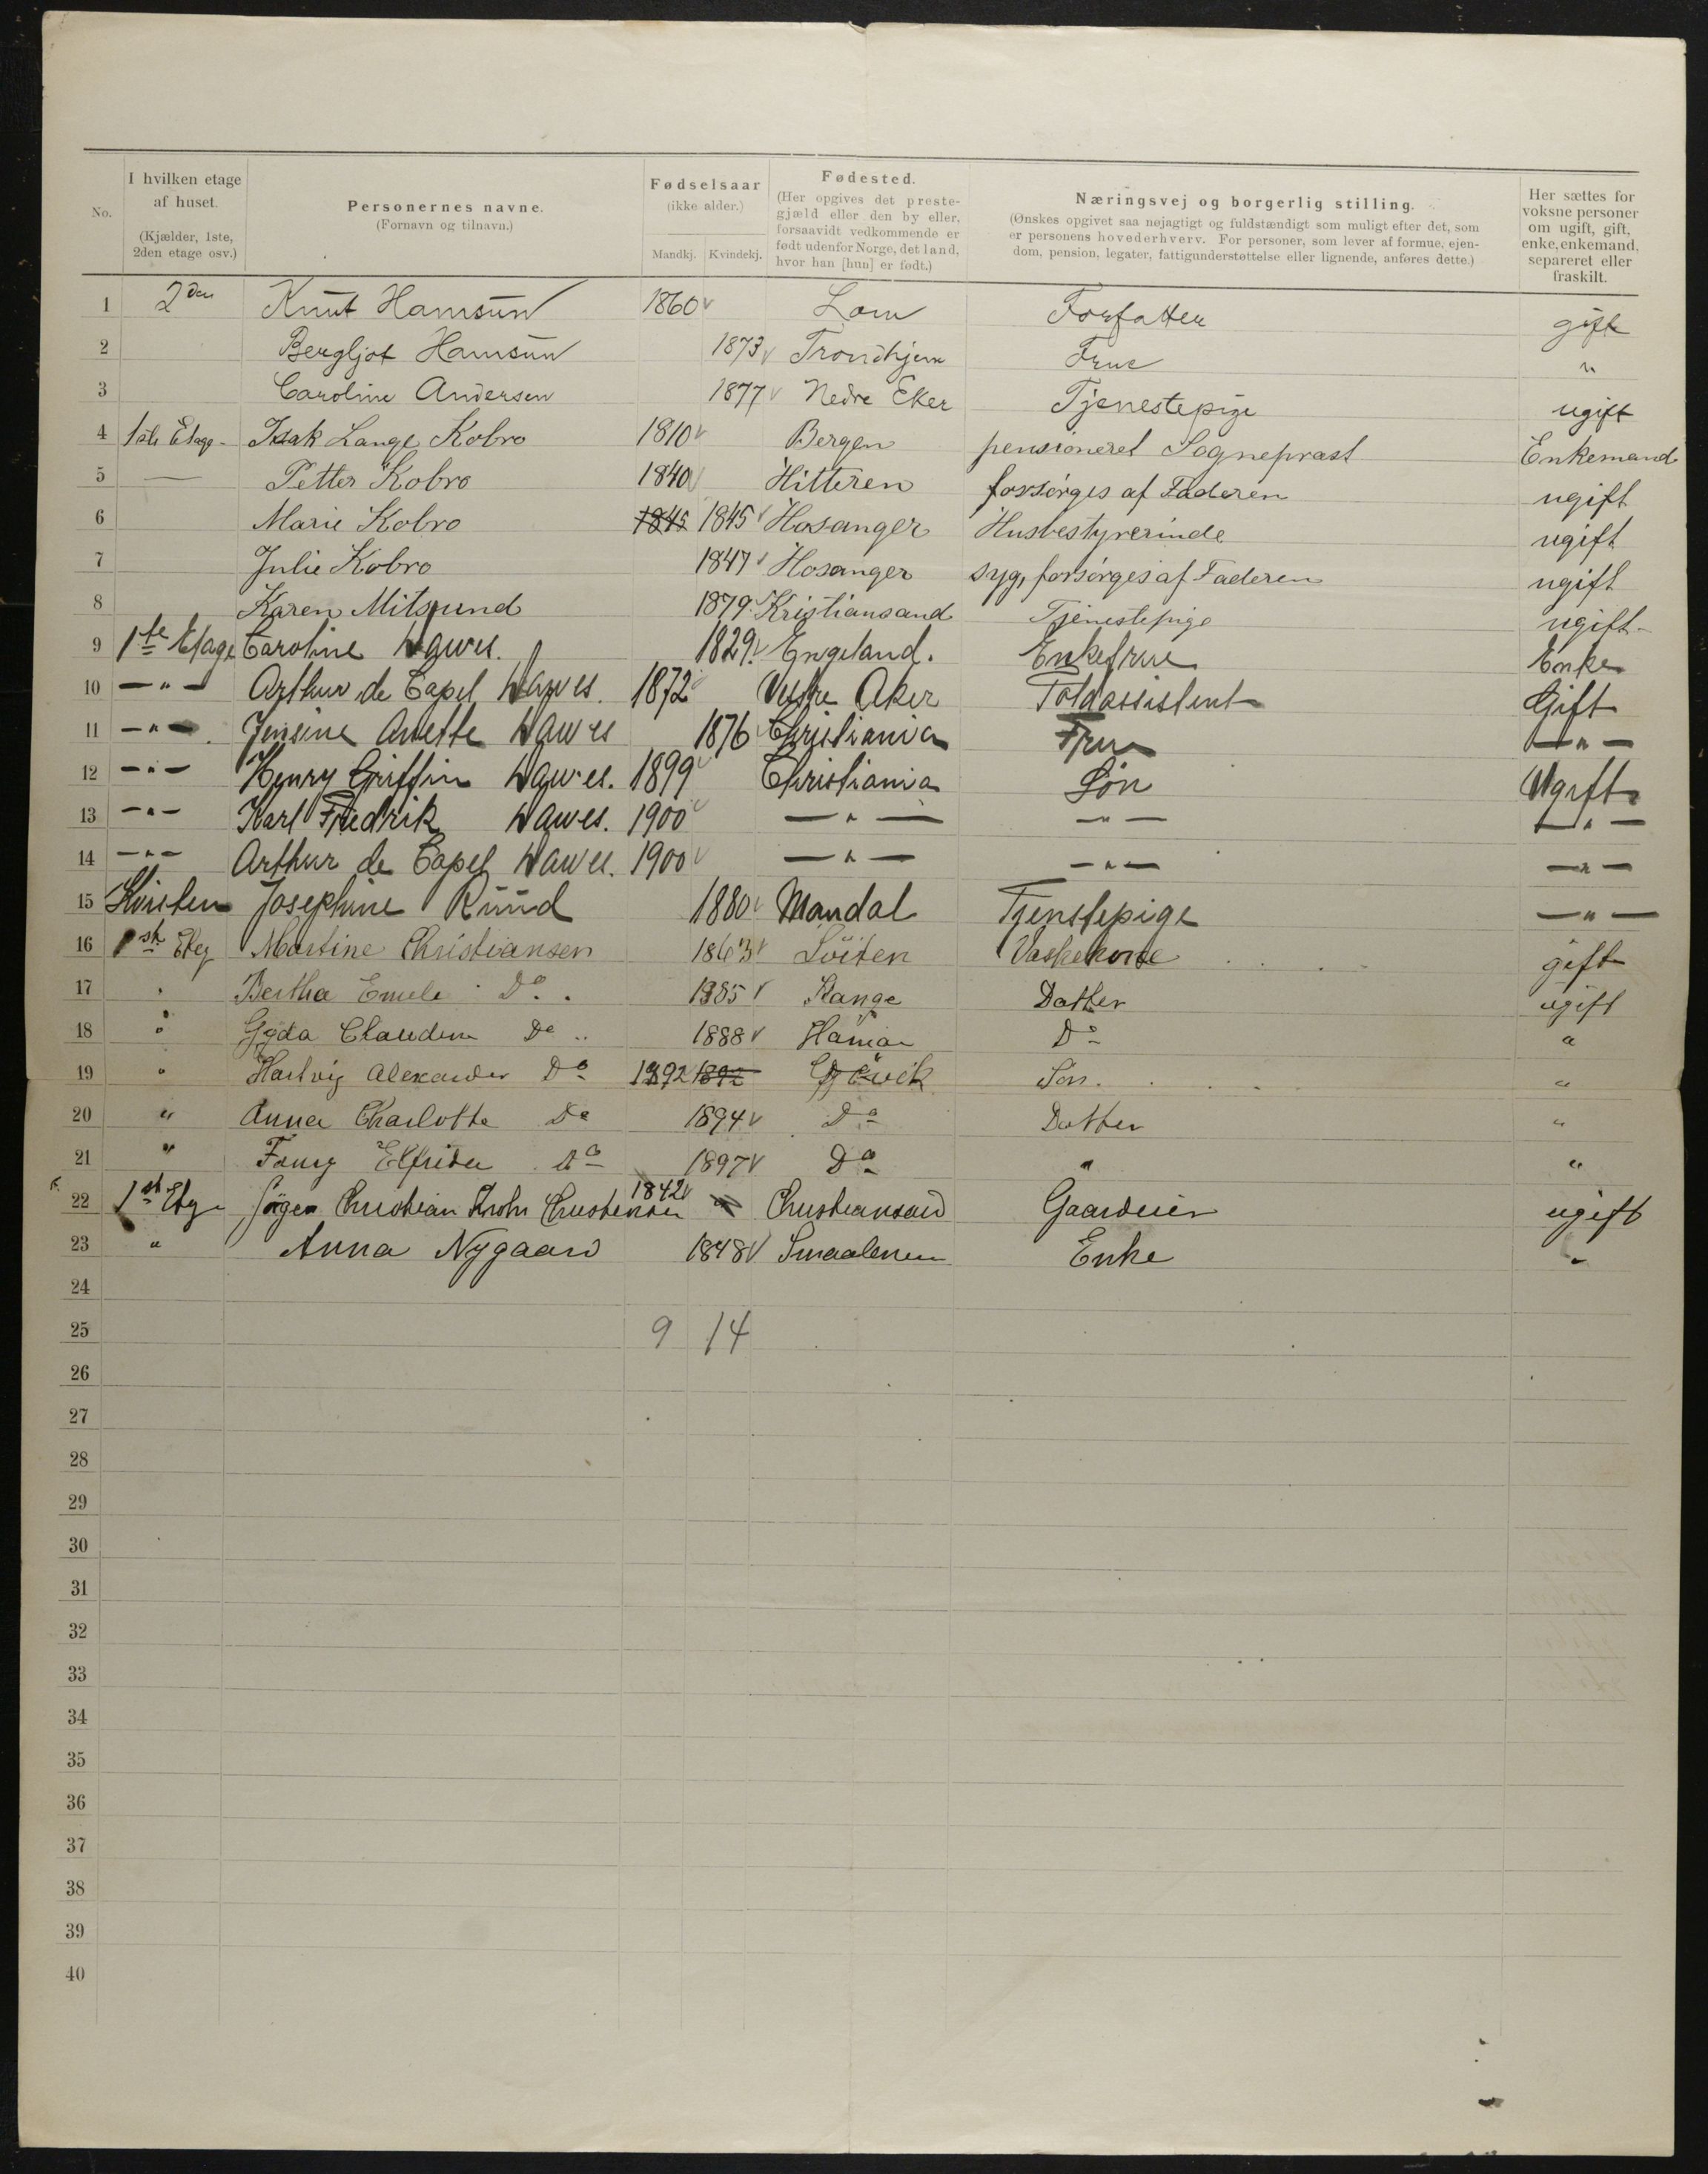 No.
I hvilken etage af huset. (Kjælder, 1ste, 2den etage osv.)
Personernes navne. (Fornavn og tilnavn.)
Fødselsaar (ikke alder.) Mandkj. Kvindekj.
Fødested. (Her opgives det prestegjæld eller den by eller, forsaavidt vedkommende er født udenfor Norge, det land, hvor han [hun] er født.)
Næringsvej og borgerlig stilling. (Ønskes opgivet saa nøjagtigt og fuldstændigt som muligt efter det, som er personens hovederhverv. For personer, som lever af formue, ejendom, pension, legater, fattigunderstøttelse eller lignende, anføres dette.)
Her sættes for voksne personer om ugift, gift, enke, enkemand, separeret eller fraskilt.
1 2den Knut Hamsun 1860 Lom Forfatter gift
2 Bergljot Hamsun 1873 Trondhjem Frue "
3 Caroline Andersen 1877 Nedre Eker Tjenestepige ugift
4 1ste Etage Isak Lange Kobro 1810 Bergen pensioneret Sognepræst Enkemand
5 — Petter Kobro 1840 Hitteren forsørges af Faderen ugift
6 Marie Kobro 1845 1845 Hosanger Husbestyrerinde ugift
7 Julie Kobro 1847 Hosanger syg, forsørges af Faderen ugift
8 Karen Mitsund 1879 Kristiansand Tjenestepige ugift
9 1te Etage Caroline Hawes. 1829. Engeland. Enkefrue Enke
10 —"— Arthur de Capel Hawes. 1872 Vestre Aker Toldassistent Gift
11 —"— Jensine Anette Hawes 1876 Christiania Frue —"—
12 —"— Henry Griffin Hawes. 1899 Christiania Søn Ugift
13 —"— Karl Fredrik Hawes. 1900 —"— —"— —"—
14 —"— Arthur de Capel Hawes. 1900 —"— —"— —"—
15 Josephine Ruud 1880 Mandal Tjenstepige —"—
16 1st Etg Martine Christiansen 1863 Löiten Vaskekone gift
17 " Bertha Emele Do. 1885 Stange Datter ugift
18 " Gyda Claudine Do 1888 Hamar Do "
19 " Hartvig Alexander Do 1892 1892 Gjövik Søn "
20 " Anna Charlotte Do 1894 Do Datter "
21 " Fanny Elfrida Do 1897 Do " "
22 1st Etg Jörgen Christian Krohn Christensen 1842 Christiansand Gaardeier ugift
23 " Anna Nygaard 1848 Smaalenene Enke "
24
25 9 14
26
27
28
29
30
31
32
33
34
35
36
37
38
39
40